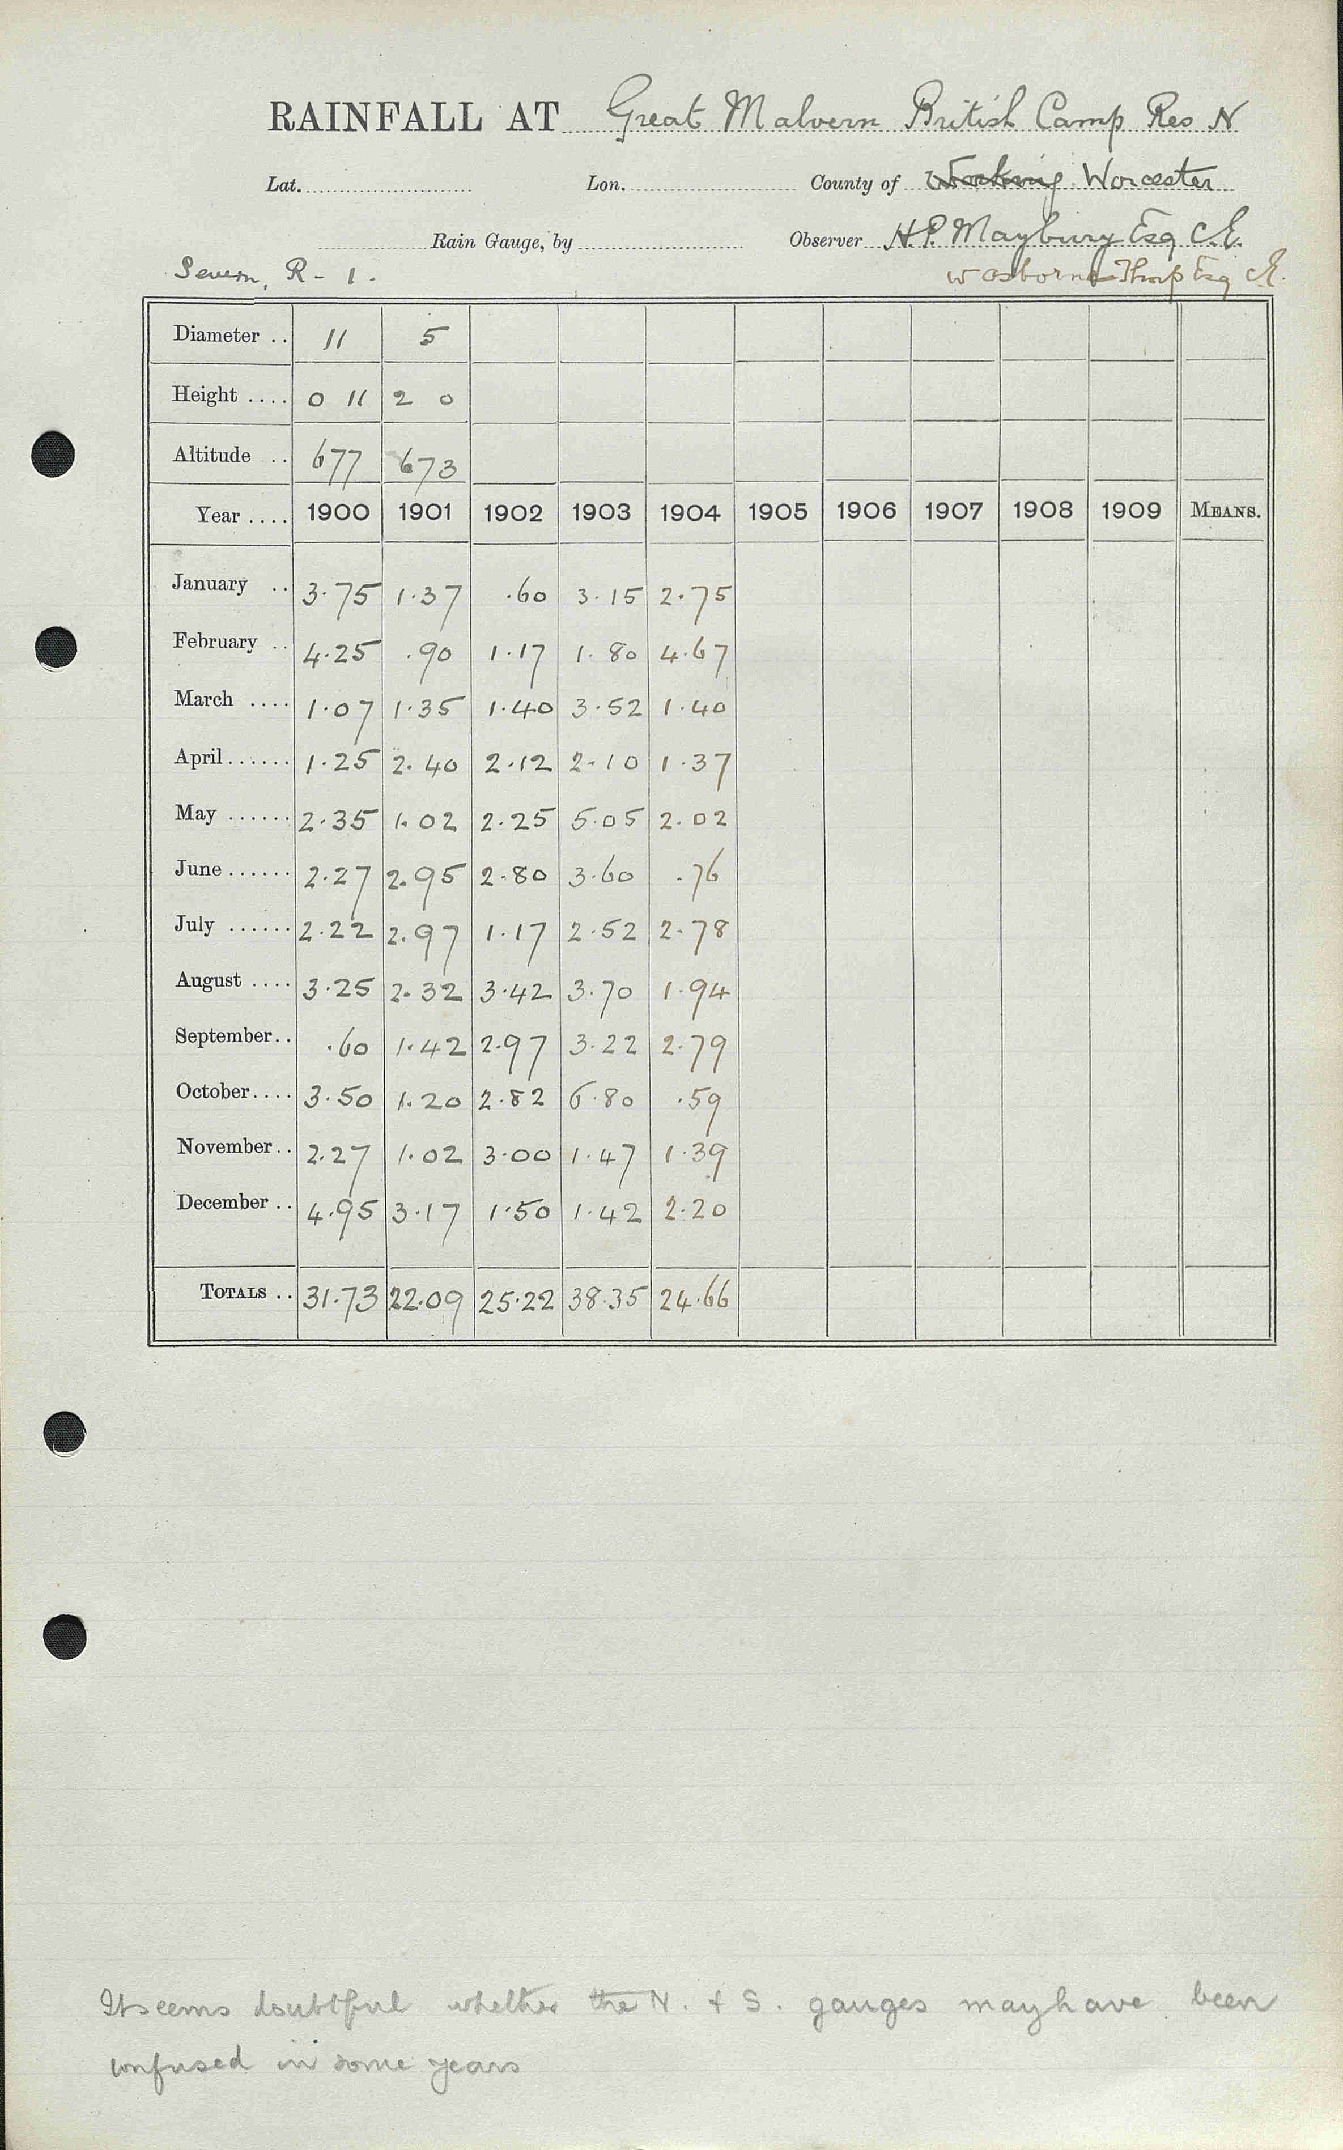 RAINFALL AT Great Malvern British Camp Res N
Lat. Lon. County of Worcester
Rain Gauge, by Observer H.P. Maybury Esq C.E.
Severn, R - 1. W Osborne Thorp Esq C.E.
Diameter .. 11 5
Height .... 0 11 2 0
Altitude .. 677 673
Year .... 1900 1901 1902 1903 1904 1905 1906 1907 1908 1909 MEANS.
January .. 3.75 1.37 .60 3.15 2.75
February .. 4.25 .90 1.17 1.80 4.67
March .... 1.07 1.35 1.40 3.52 1.40
April...... 1.25 2.40 2.12 2.10 1.37
May ...... 2.35 1.02 2.25 5.05 2.02
June...... 2.27 2.95 2.80 3.60 .76
July ...... 2.22 2.97 1.17 2.52 2.78
August .... 3.25 2.32 3.42 3.70 1.94
September.. .60 1.42 2.97 3.22 2.79
October.... 3.50 1.20 2.82 6.80 .59
November.. 2.27 1.02 3.00 1.47 1.39
December .. 4.95 3.17 1.50 1.42 2.20
TOTALS .. 31.73 22.09 25.22 38.35 24.66
It seems doubtful whether the N. & S. gauges may have been
confused in some years